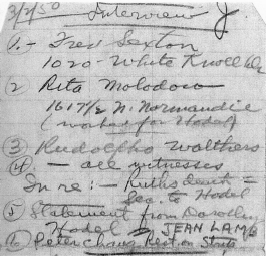 3/7/50 Interview J.
1. - Fred Sexton
1020 - White Knoll Dr
2 Rita Molodoso
1617 1/2 N. Normandie
(worked for Hodel)
3 Rudolpho Walthers
4 - all witnesses
In re : - Ruth's death =
Sec. to Hodel
5 Statement from Dorothy
Hodel JEAN LAMB
6 Peter Chang Rest on State